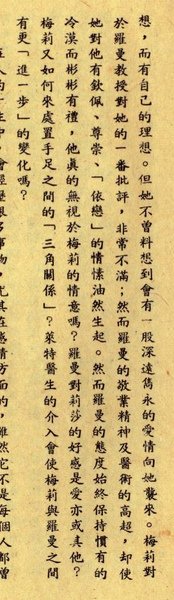 想,而有自己的理想。但她不曾料想到會有一股深遠雋永的愛情向她襲來。梅莉對
於羅曼教授對她的一番批評,非常不滿;然而羅曼的敬業精神及醫術的高超,卻使
她對他有欽佩、尊崇、「依戀」的情愫油然生起。然而羅曼的態度始終保持慣有的
冷漠而彬彬有禮,他真的無視於梅莉的情意嗎?羅曼對莉莎的好感是愛亦或其他?
梅莉又如何來處置手足之間的「三角關係」?萊特醫生的介入會使梅莉與羅曼之間
有更「進一步」的變化嗎?